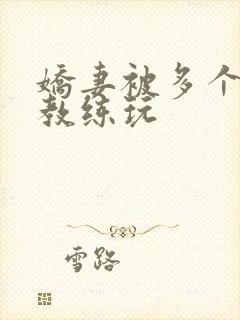 娇妻被多个
教练玩
雪路